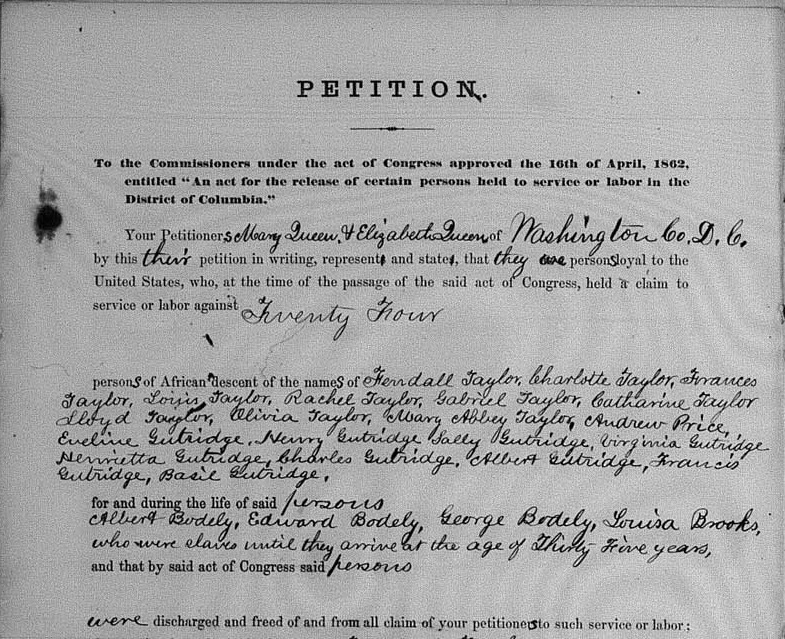 PETITION.
To the Commissioners under the act of Congress approved the 16th of April, 1862,
entitled "An act for the release of certain persons held to service or labor in the
District of Columbia."
Your Petitioners Mary Queen, & Elizabeth Queen of Washington Co. D. C.
by this their petition in writing, represent and state, that they are persons loyal to the
United States, who, at the time of the passage of the said act of Congress, held a claim to
service or labor against Twenty Four
persons of African descent of the names of Fendall Taylor, Charlotte Taylor, Frances
Taylor, Louis Taylor, Rachel Taylor, Gabriel Taylor, Catharine Taylor
Lloyd Taylor, Olivia Taylor, Mary Abbey Taylor, Andrew Price,
Eveline Gutridge, Henry Gutridge Sally Gutridge, Virginia Gutridge
Henrietta Gutridge, Charles Gutridge, Albert Gutridge, Francis
Gutridge, Basil Gutridge,
for and during the life of said persons
Albert Bodely, Edward Bodely, George Bodely, Louisa Brooks,
who were slaves until they arrive at the age of Thirty Five years,
and that by said act of Congress said persons
were discharged and freed of and from all claim of your petitioners to such service or labor;